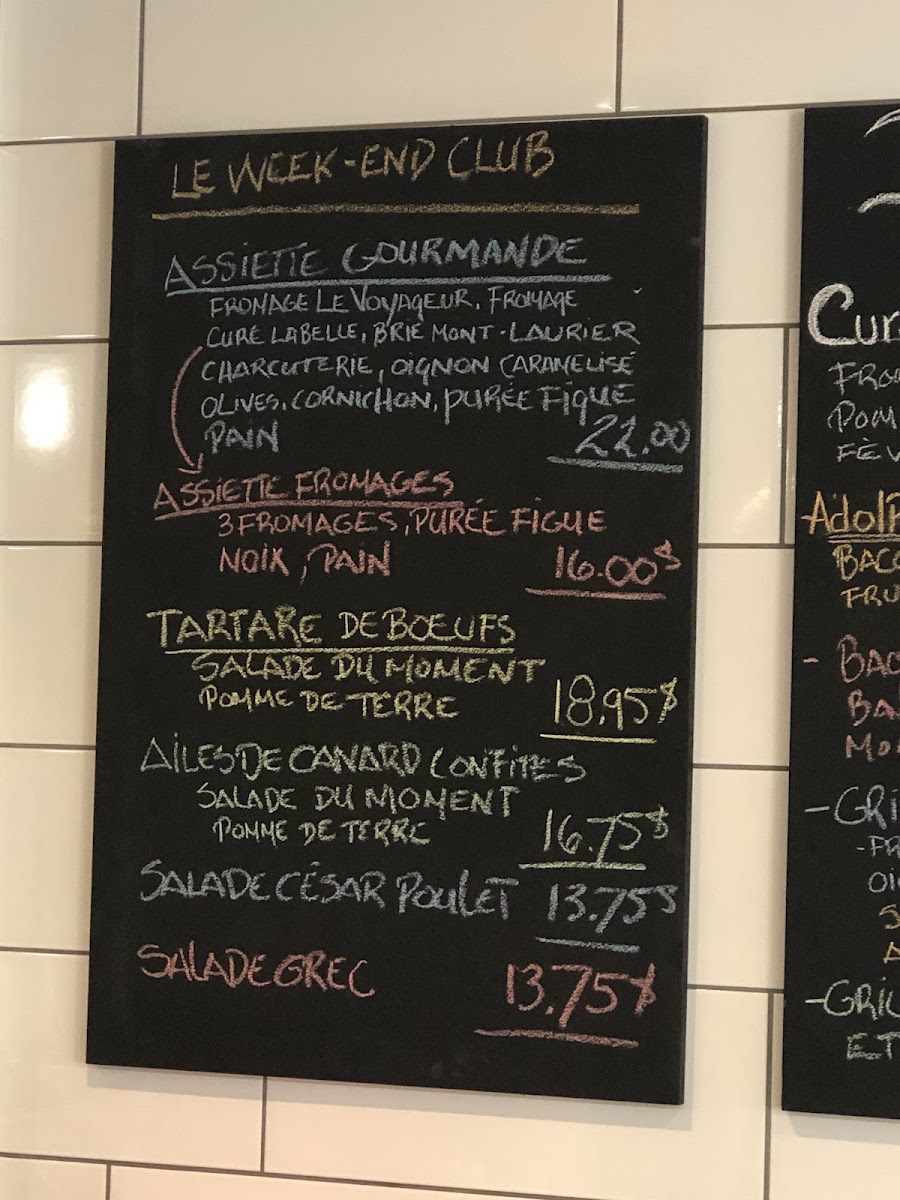 LE WEEK-END CLUB
ASSIETTE GOURMANDE
FRONAGE LE VOYAGEUR, FROMAGE
CURE LABELLE, BRIE MONT-LAURIER
CHARCUTERIE, OIGNON CARAMELISÉ
OLIVES, CORNICHON, PURÉE FIGUE
PAIN 22.00
ASSIETTE FROMAGES
3 FROMAGES, PURÉE FIGUE
NOIX, PAIN 16.00$
TARTARE DE BOEUFS
SALADE DU MOMENT
POMME DE TERRE 18.95$
AILES DE CANARD CONFITES
SALADE DU MOMENT
POMME DE TERRE 16.75$
SALADE CÉSAR POULET 13.75$
SALADE GREC 13.75$
ET